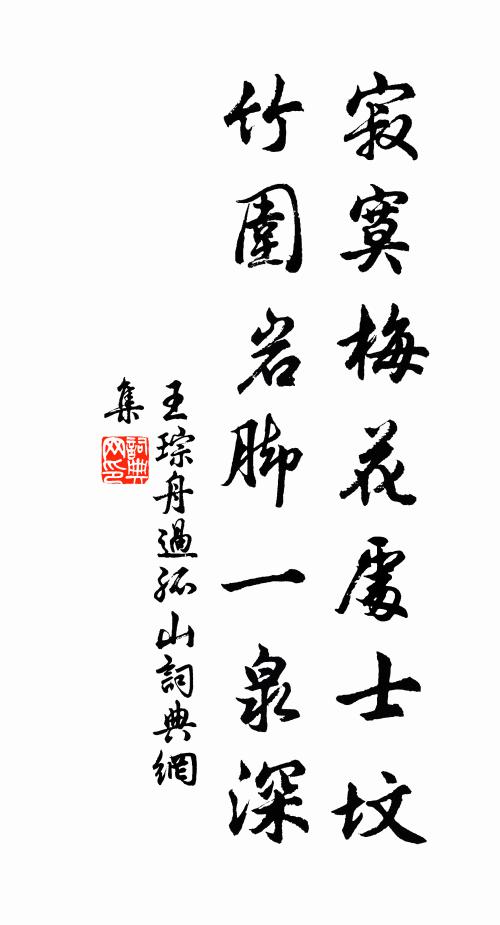 寂寞梅花處士墳
竹圍岩脚一泉深
王琮舟過孤山詞典網
集
詞典
网印